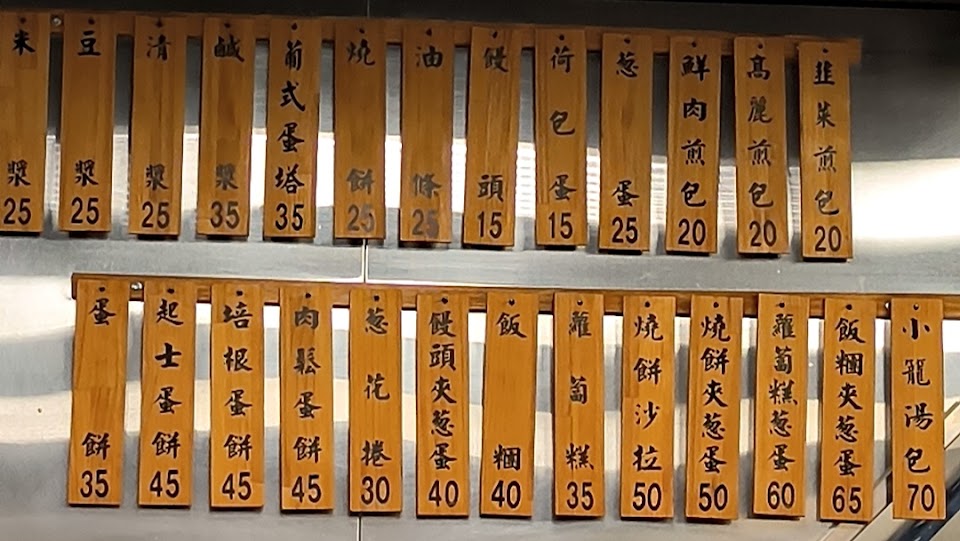 米漿 25
豆漿 25
清漿 25
鹹漿 35
葡式蛋塔 35
燒餅 25
油條 25
饅頭 15
荷包蛋 15
葱蛋 25
鮮肉煎包 20
高麗煎包 20
韭菜煎包 20
蛋餅 35
起士蛋餅 45
培根蛋餅 45
肉鬆蛋餅 45
葱花捲 30
饅頭夾葱蛋 40
飯糰 40
蘿蔔糕 35
燒餅沙拉 50
燒餅夾葱蛋 50
蘿蔔糕葱蛋 60
飯糰夾葱蛋 65
小籠湯包 70